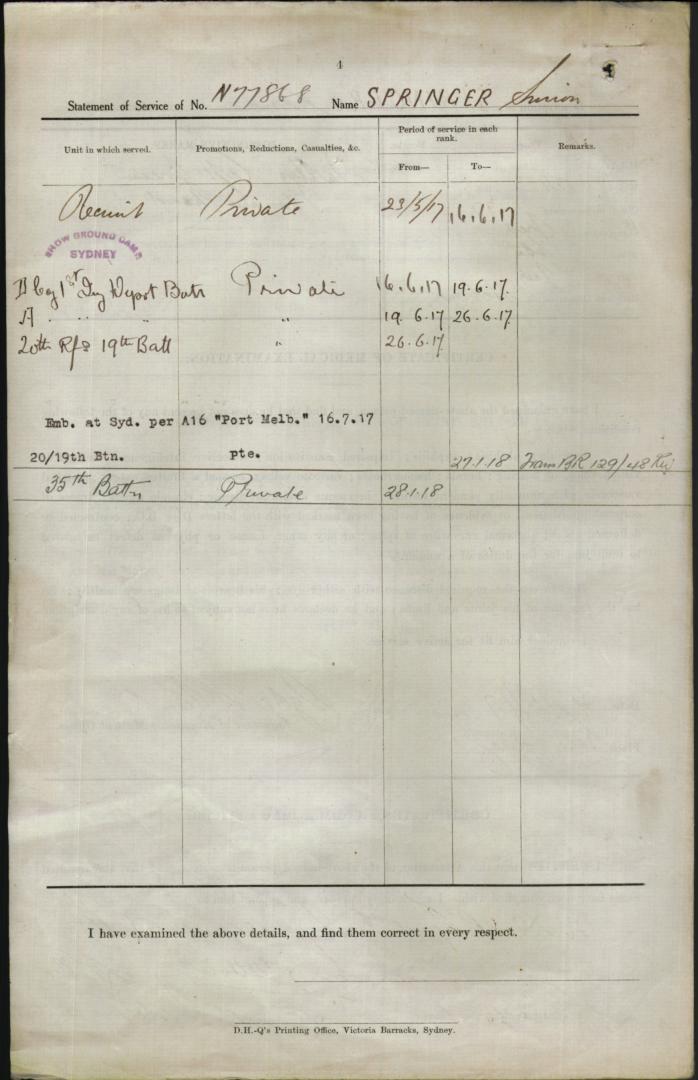 4
Statement of Service of No. N77868 Name SPRINGER Simion
Unit in which served. Promotions, Reductions, Casualties, &c. Period of service in each rank. From— To— Remarks.
Recruit Private 23/5/17 16.6.17
SHOW GROUND CAMP
SYDNEY
1st Depot Batt Private 16.6.17 19.6.17.
A " " " " 19.6.17 26.6.17.
20th Rfs 19th Batt " 26.6.17.
Emb. at Syd. per A16 "Port Melb." 16.7.17
20/19th Btn. pte. 27.1.18 BR 129/48
35th Battn Private 28.1.18
I have examined the above details, and find them correct in every respect.
D.H.-Q's Printing Office, Victoria Barracks, Sydney.